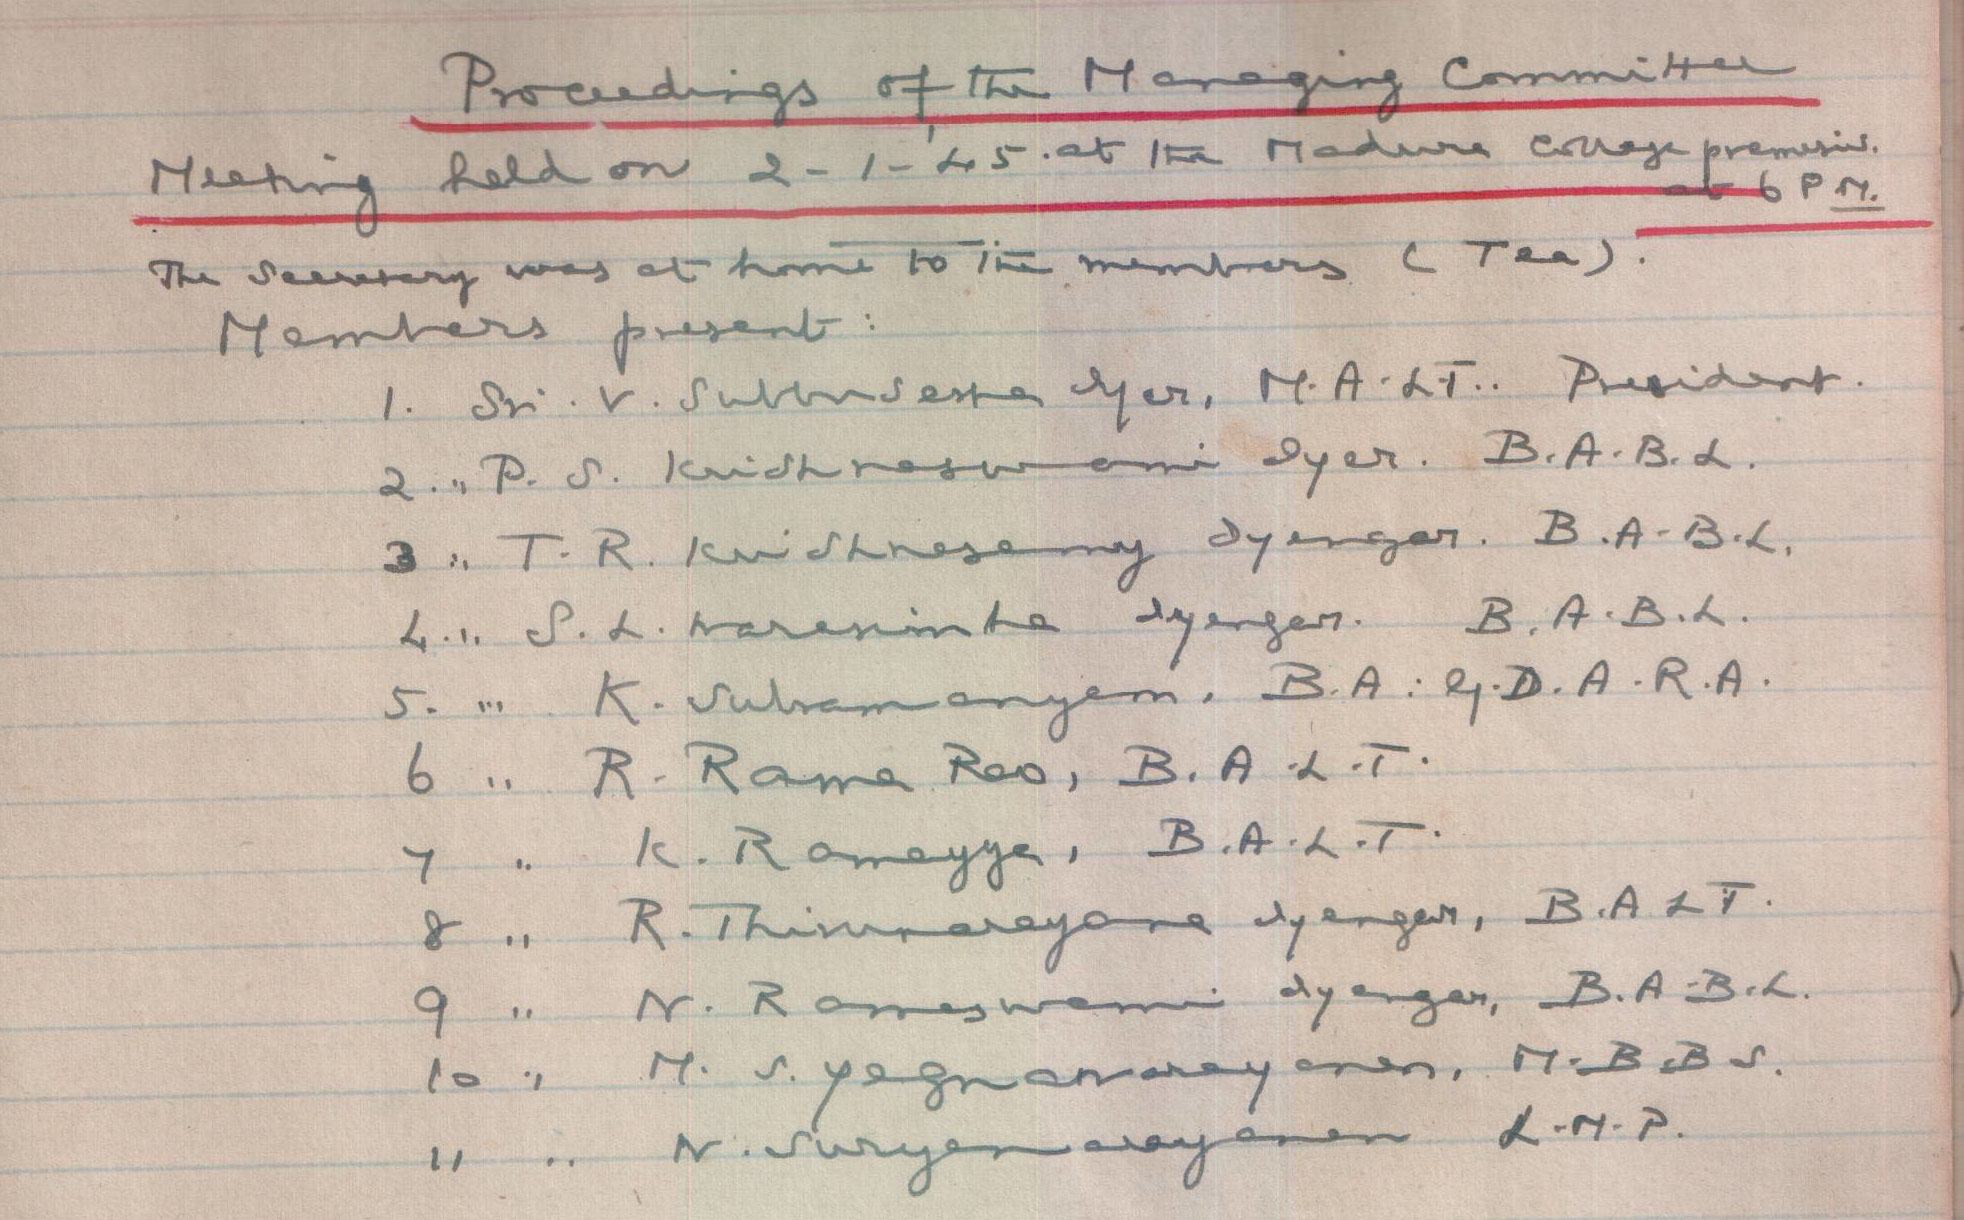 Proceedings of the Managing Committee
Meeting held on 2-1-'45. at the Madura College premisis.
at 6 P M.
The Secretary was at home to the members (Tea).
Members present:
1. Sri. V. Subbusesha Iyer, M.A.LT.. President.
2. " P. S. Krishnaswami Iyer. B.A.B.L.
3 " T. R. Krishnasamy Iyengar. B.A-B.L.
4. " S. L. Narasimha Iyengar. B.A.B.L.
5. " K. Subramanyam. B.A: G.D.A.R.A.
6 " R. Rama Rao, B.A.L.T.
7 " K. Ramayya, B.A.L.T.
8 " R. Thirunarayana Iyengar, B.A LT.
9 " N. Rameswami Iyengar, B.A-B.L.
10 " M. S. Yagnanarayanan, M.B.B S.
11 " N. Suryanarayanan L.M.P.